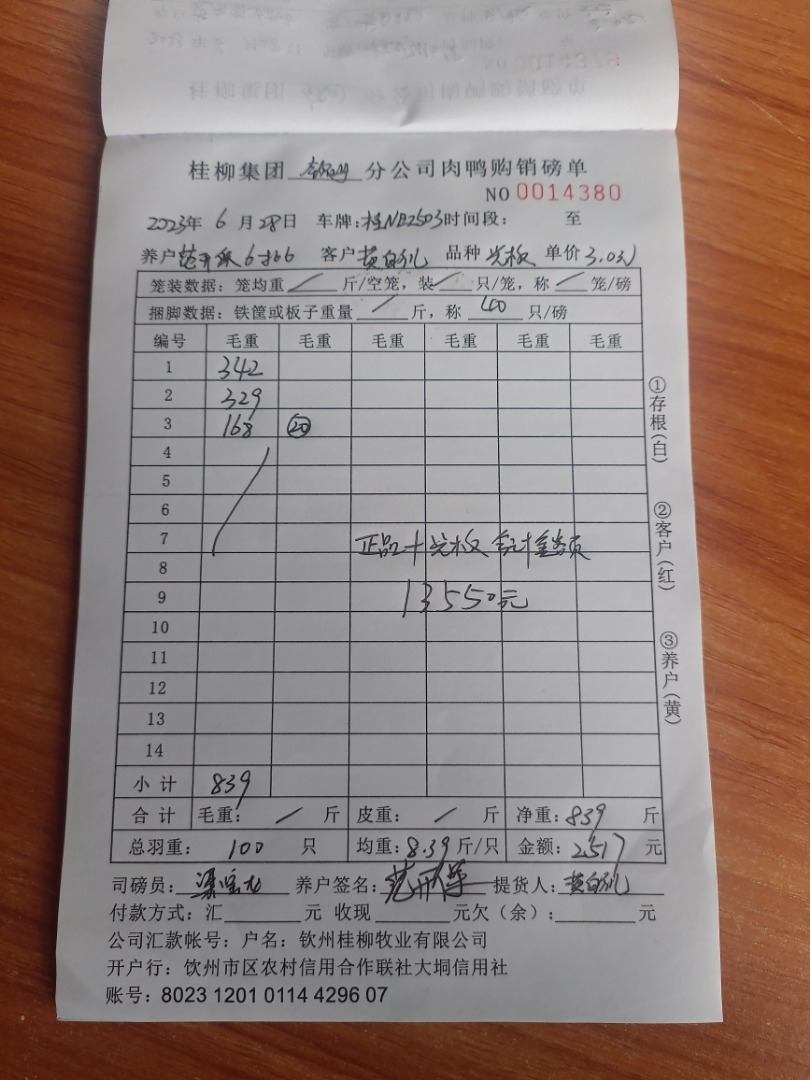 桂柳集团 钦州 分公司肉鸭购销磅单
NO 0014380
2023年 6 月 28日 车牌：桂NE2503 时间段： 至
养户 范开 6 客户 黄 品种 光板 单价 3.0元
笼装数据：笼均重 / 斤/空笼，装 / 只/笼，称 / 笼/磅
捆脚数据：铁筐或板子重量 / 斤，称 40 只/磅
编号 毛重 毛重 毛重 毛重 毛重 毛重
1 342
2 329
3 168 20
4
5
6
7 正品+光板 合计金额
8
9 13550元
10
11
12
13
14
小 计 839
合 计 毛重： / 斤 皮重： / 斤 净重：839 斤
总羽重： 100 只 均重：8.39 斤/只 金额：2517 元
司磅员：梁 养户签名：范开 提货人：黄
付款方式：汇 元 收现 元欠（余）： 元
公司汇款帐号：户名：钦州桂柳牧业有限公司
开户行：钦州市区农村信用合作联社大垌信用社
账号：8023 1201 0114 4296 07
①存根（白）
②客户（红）
③养户（黄）